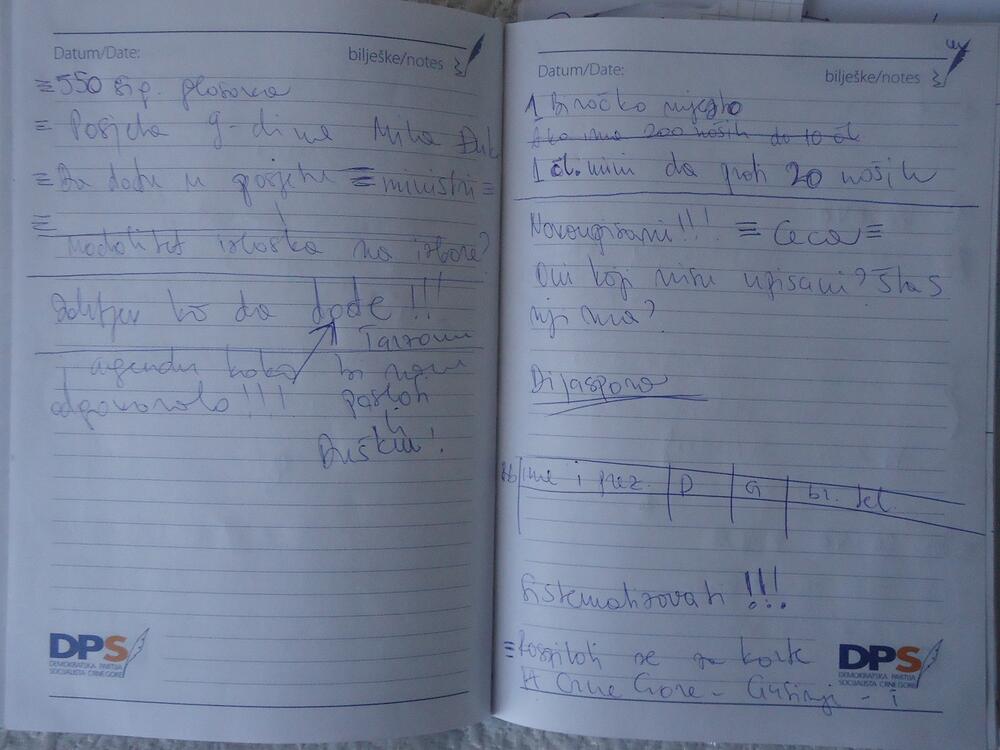 Datum/Date:
bilješke/notes
≡ 550 sig. glasova
≡ Posjeta g-dina Mila Đuk
≡ Da dođu u posjetu ≡ ministri ≡
≡
Modalitet izlaska na izbore?
Zahtjev ko da dođe!!!
agendu kako bi njem
odgovorolo!!!
poslati
Dušku!
DPS
DEMOKRATSKA PARTIJA
SOCIJALISTA CRNE GORE
Datum/Date:
bilješke/notes
1 Biračko mjesto
Ako ima 200 noših do 10 čl.
1 čl. mini da prati 20 noših
Novoupisani!!! ≡ Ceca ≡
Oni koji nisu upisani? Šta s
njima?
Dijaspora
ime i prez. D G br. tel.
Sistematizovati !!!
≡ Raspitati se za
H Crne Gore - Gusinje - i
DPS
DEMOKRATSKA PARTIJA
SOCIJALISTA CRNE GORE